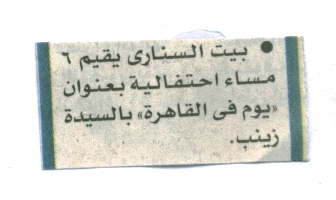 ● بيت السنارى يقيم ٦
مساء احتفالية بعنوان
«يوم فى القاهرة» بالسيدة
زينب.